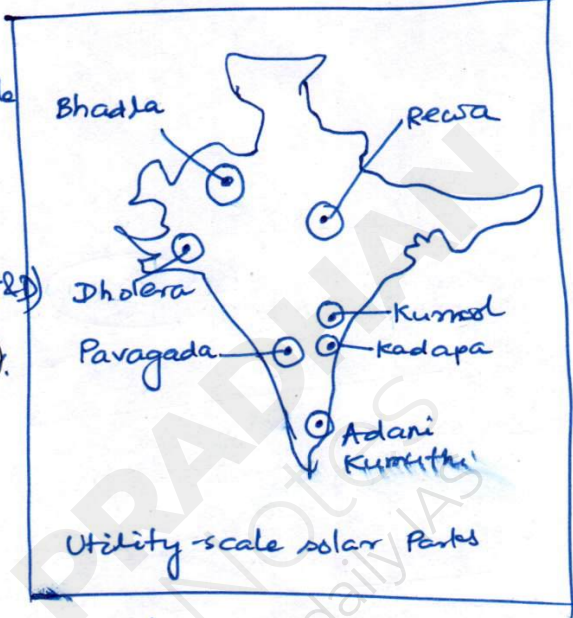 Bhadla
Rewa
&D)
Dholera
Kurnool
Pavagada
Kadapa
Adani
Kumuthi
Utility-scale solar Parks
PRADHAN
Notes
daily IAS